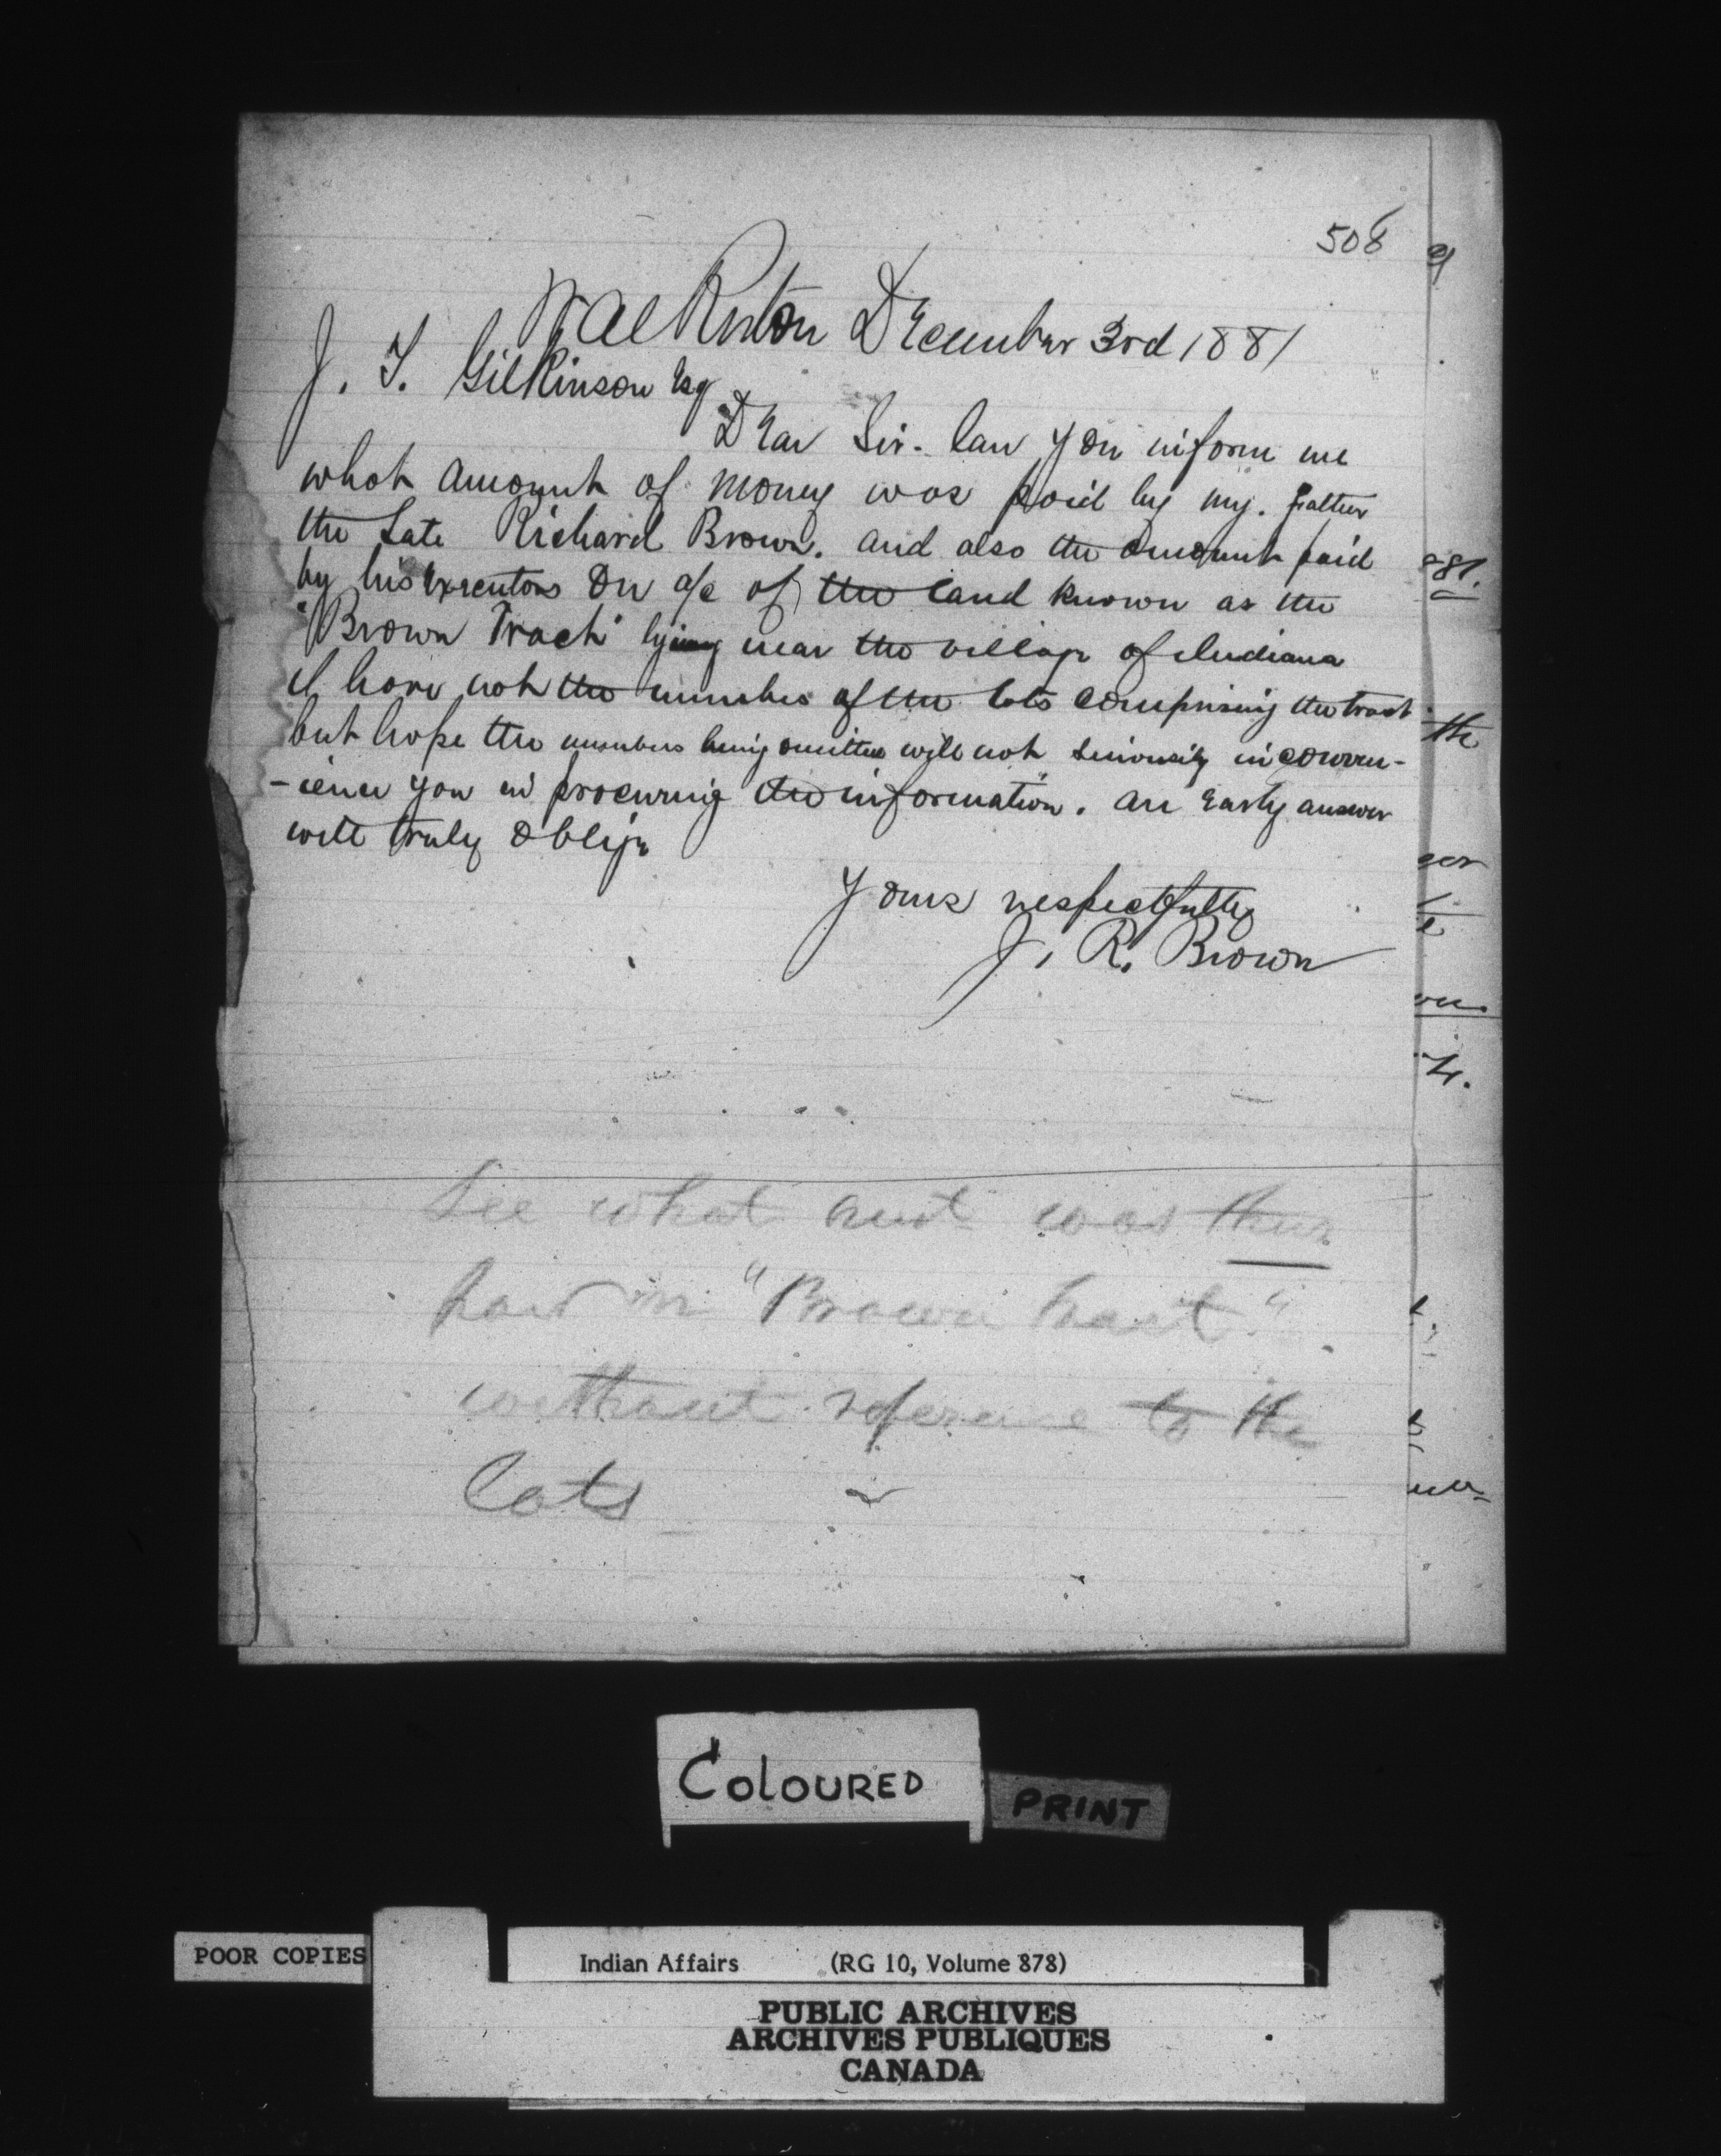 508
Walkerton December 3rd 1881
J. T. Gilkinson Esq
Dear Sir. Can you inform me
what amount of money was paid by my. Father
the Late Richard Brown. and also the amount paid
by his Executors On a/c of the land known as the
"Brown Track" lying near the village of Indiana
I have not the numbers of the lots comprising the tract
but hope the numbers being omitted will not seriously inconven-
-ience you in procuring the information. An Early answer
will truly Oblige
Yours respectfully
J. R. Brown
See what amt was
paid in "Brown tract"
without reference to the
Lots
881.
the
COLOURED
PRINT
POOR COPIES
Indian Affairs (RG 10, Volume 878)
PUBLIC ARCHIVES
ARCHIVES PUBLIQUES
CANADA